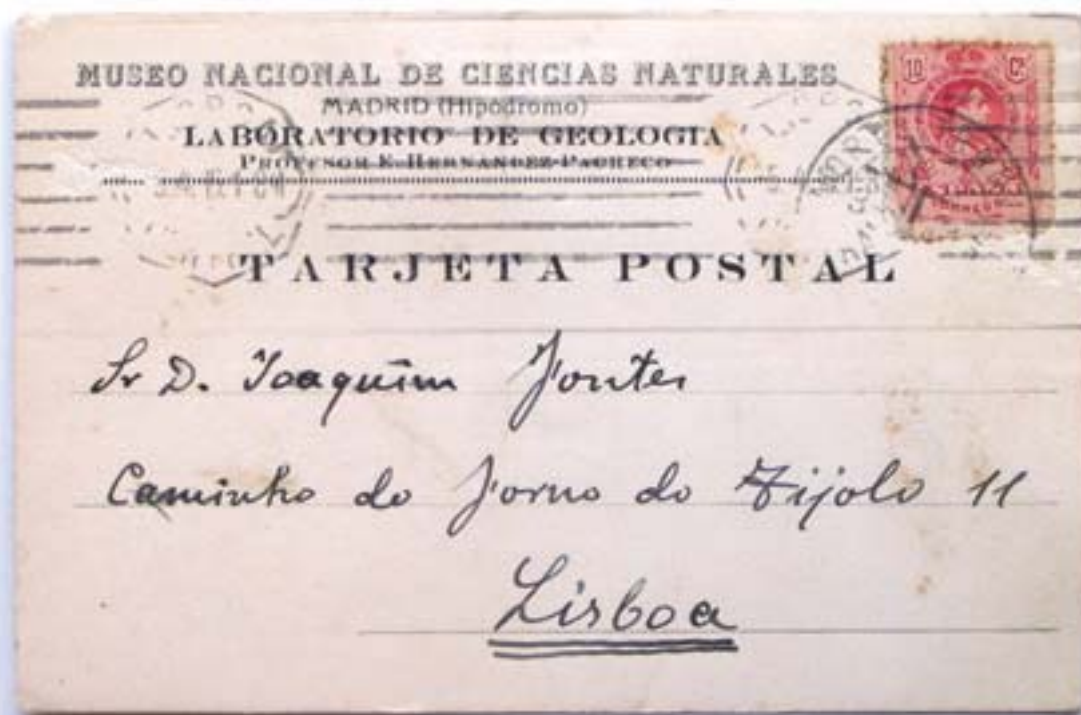 MUSEO NACIONAL DE CIENCIAS NATURALES
MADRID (Hipódromo)
LABORATORIO DE GEOLOGIA
PROFESOR E. HERNANDEZ-PACHECO
10 Cs
TARJETA POSTAL
Sr D. Joaquim Fontes
Caminho do Forno do Tijolo 11
Lisboa